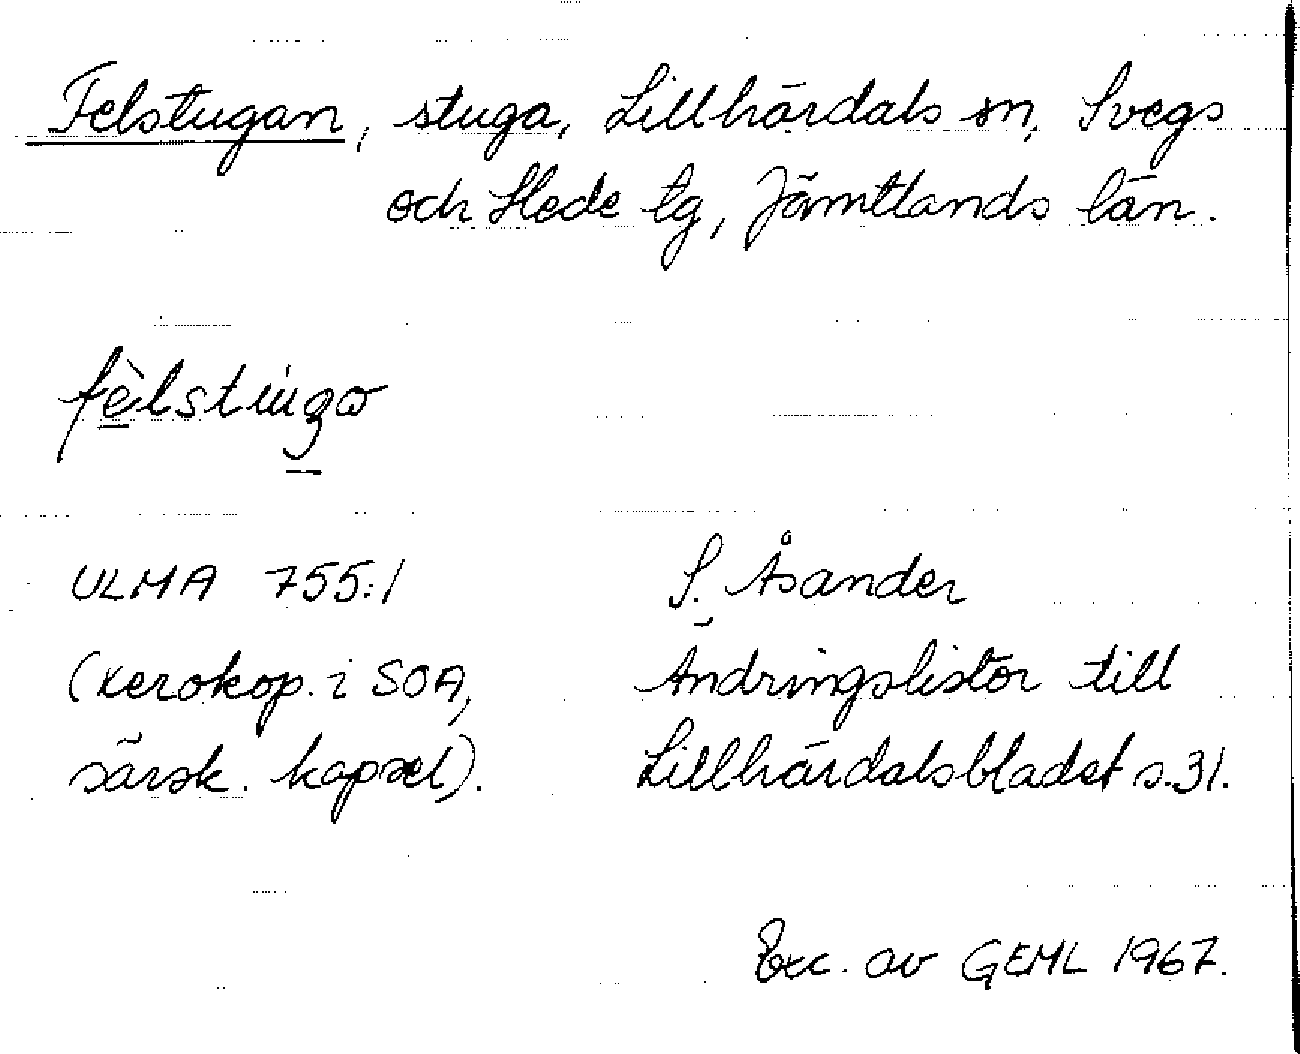 Felstugan, stuga, Lillhärdals sn, Svegs
och Hede tg, Jämtlands län.
fèlstugɷ
ULMA 755:1 S. Åsander
(Xerokop. i SOA, Ändringslistor till
särsk. kapsel). Lillhärdalsbladet s. 31.
Exc. av GEML 1967.